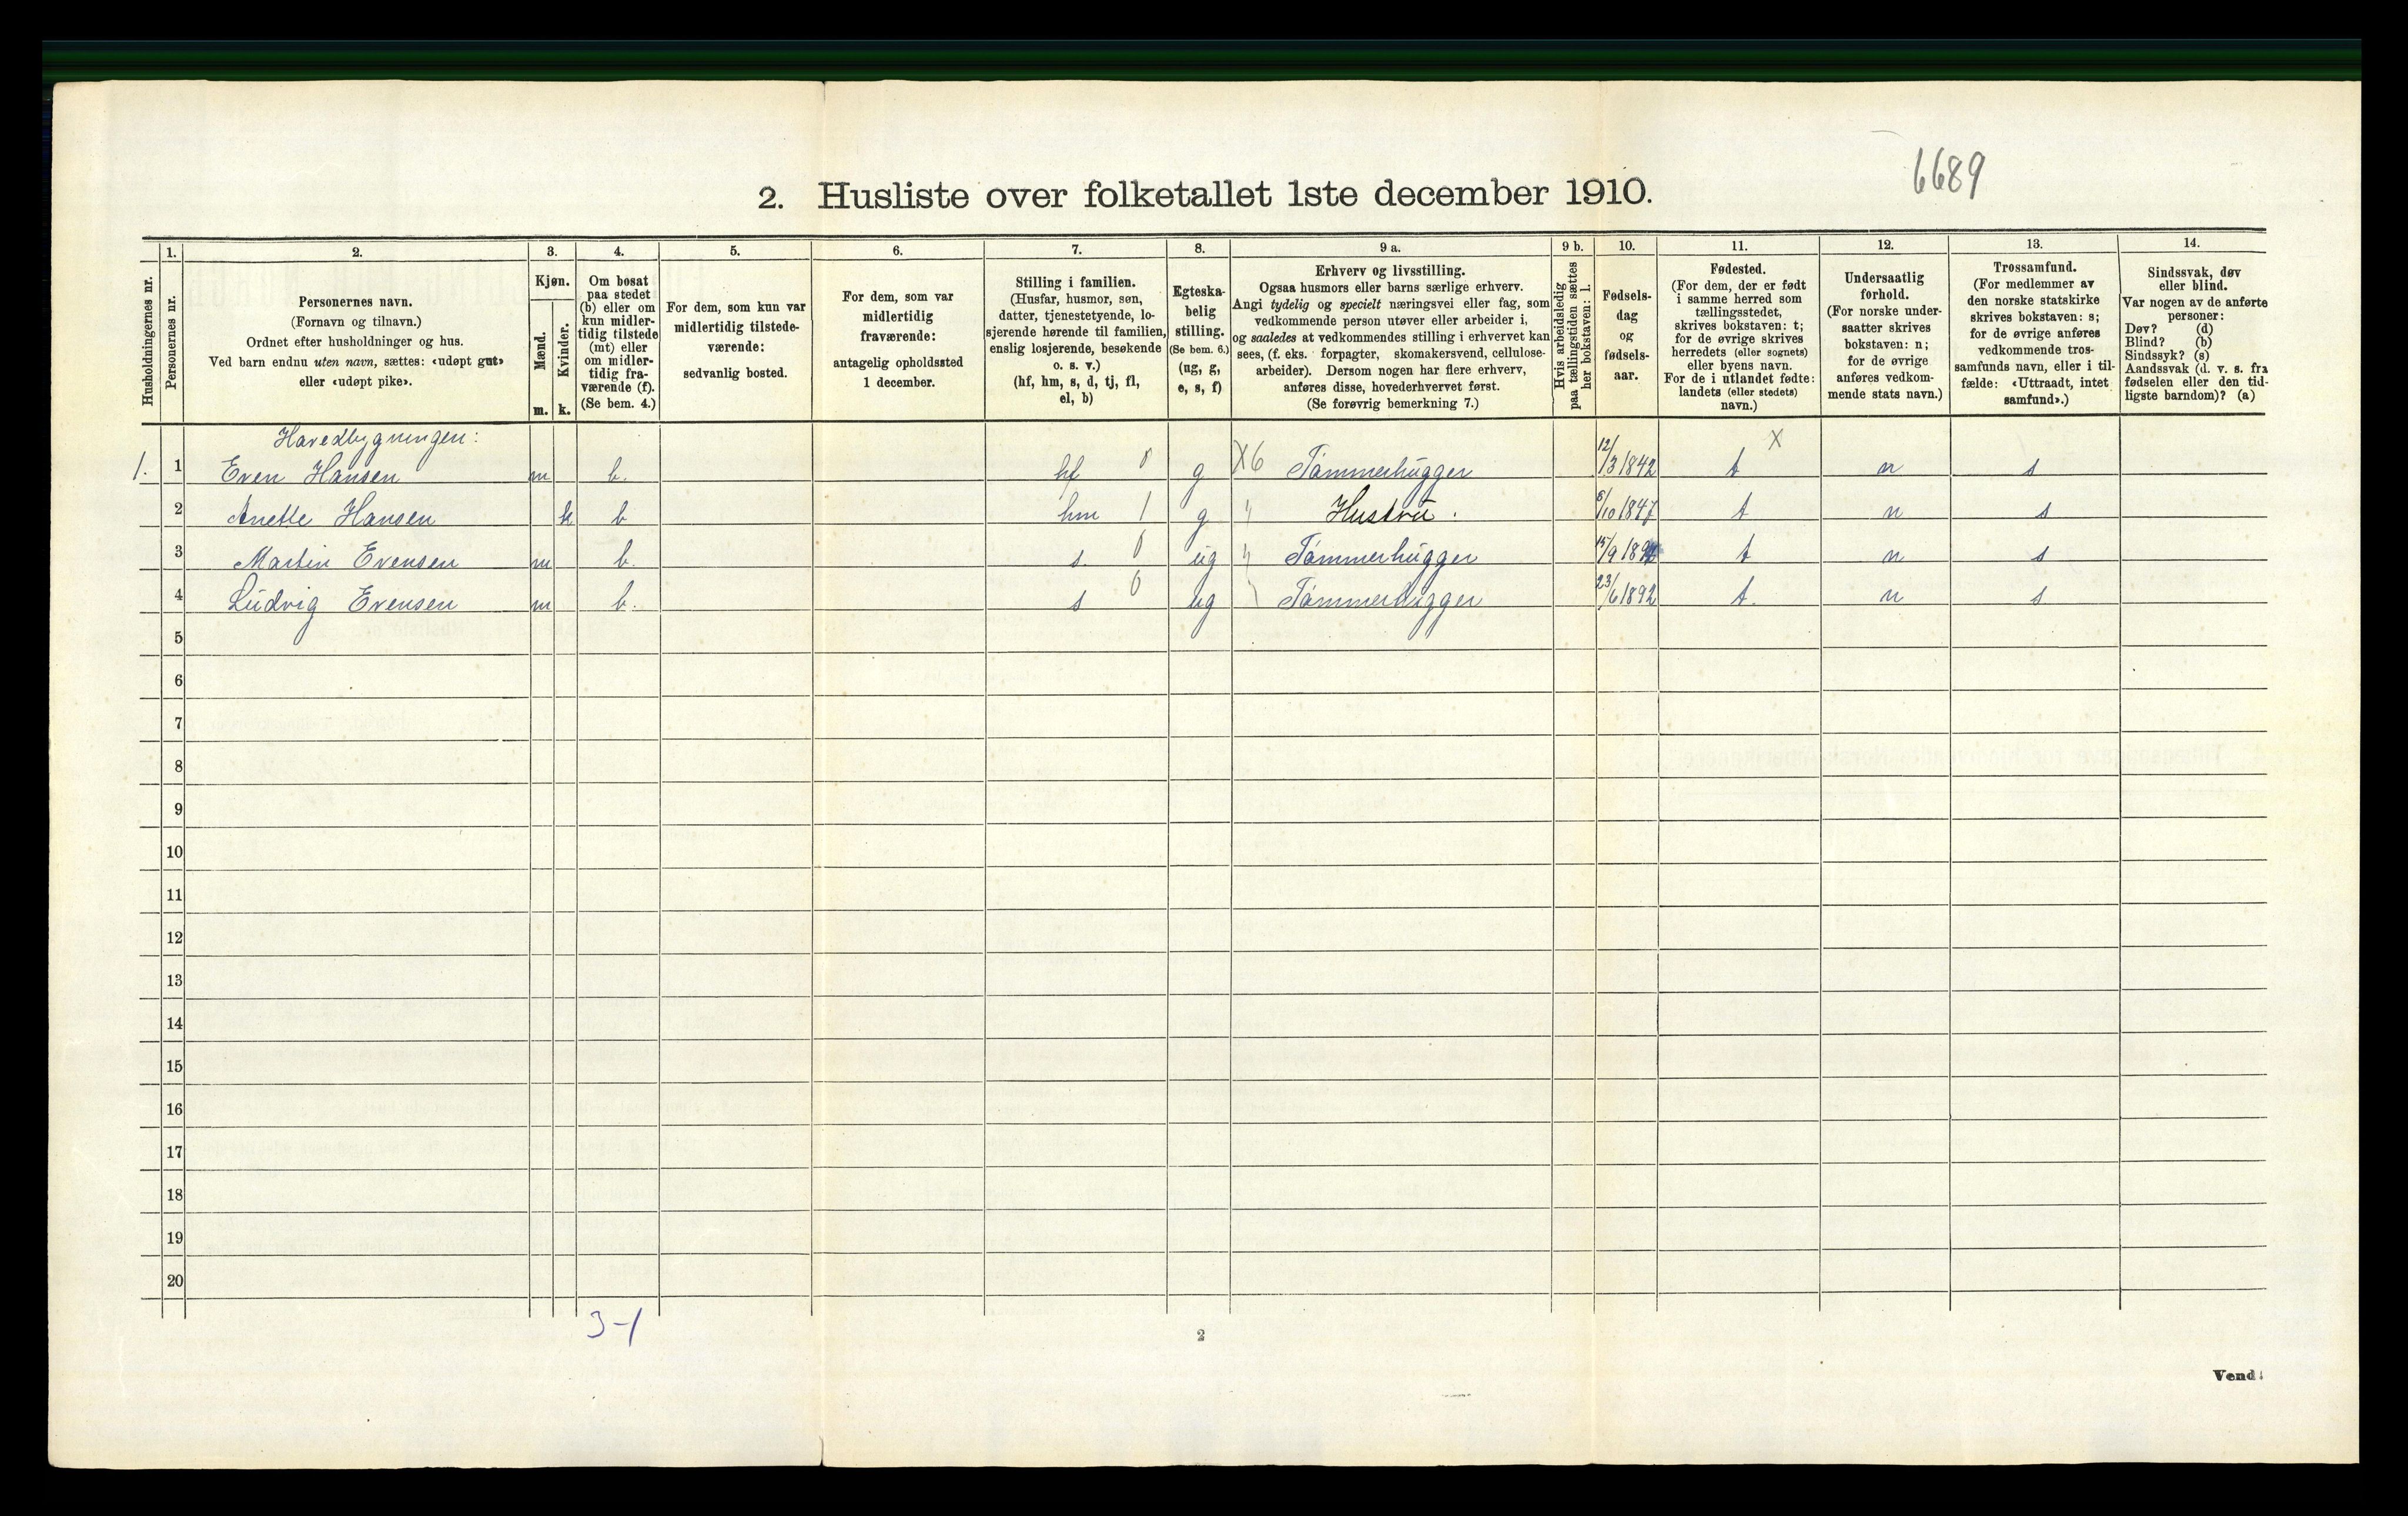 6689
2. Husliste over folketallet 1ste december 1910.
Husholdningernes nr.
1.
Personernes nr.
2.
Personernes navn.
(Fornavn og tilnavn.)
Ordnet efter husholdninger og hus.
Ved barn endnu uten navn, sættes: «udøpt gut»
eller «udøpt pike».
3.
Kjøn.
Mænd.
m.
Kvinder.
k.
4.
Om bosat
paa stedet
(b) eller om
kun midler-
tidig tilstede
(mt) eller
om midler-
tidig fra-
værende (f).
(Se bem. 4.)
5.
For dem, som kun var
midlertidig tilstede-
værende:
sedvanlig bosted.
6.
For dem, som var
midlertidig
fraværende:
antagelig opholdssted
1 december.
7.
Stilling i familien.
(Husfar, husmor, søn,
datter, tjenestetyende, lo-
sjerende hørende til familien,
enslig losjerende, besøkende
o. s. v.)
(hf, hm, s, d, tj, fl,
el, b)
8.
Egteska-
belig
stilling.
(Se bem. 6.)
(ug, g,
e, s, f)
9 a.
Erhverv og livsstilling.
Ogsaa husmors eller barns særlige erhverv.
Angi tydelig og specielt næringsvei eller fag, som
vedkommende person utøver eller arbeider i,
og saaledes at vedkommendes stilling i erhvervet kan
sees, (f. eks. forpagter, skomakersvend, cellulose-
arbeider). Dersom nogen har flere erhverv,
anføres disse, hovederhvervet først.
(Se forøvrig bemerkning 7.)
9 b.
Hvis arbeidsledig
paa tællingstiden sættes
her bokstaven: l.
10.
Fødsels-
dag
og
fødsels-
aar.
11.
Fødested.
(For dem, der er født
i samme herred som
tællingsstedet,
skrives bokstaven: t;
for de øvrige skrives
herredets (eller sognets)
eller byens navn.
For de i utlandet fødte:
landets (eller stedets)
navn.)
12.
Undersaatlig
forhold.
(For norske under-
saatter skrives
bokstaven: n;
for de øvrige
anføres vedkom-
mende stats navn.)
13.
Trossamfund.
(For medlemmer av
den norske statskirke
skrives bokstaven: s;
for de øvrige anføres
vedkommende tros-
samfunds navn, eller i til-
fælde: «Uttraadt, intet
samfund».)
14.
Sindssvak, døv
eller blind.
Var nogen av de anførte
personer:
Døv? (d)
Blind? (b)
Sindssyk? (s)
Aandssvak (d. v. s. fra
fødselen eller den tid-
ligste barndom)? (a)
Hovedbygningen:
1. 1 Even Hansen m b. hf 0 g X6 Tømmerhugger 12/3 1842 t X n s
2 Anette Hansen k b hm 1 g " Hustru. 6/10 1847 t n s
3 Martin Evensen m b. s. 0 ug " Tømmerhugger 15/9 189 t n s
4 Ludvig Evensen m b. s 0 ug Tømmerhugger 23/6 1892 t. n s
5
6
7
8
9
10
11
12
13
14
15
16
17
18
19
20
3-1
2
Vend!